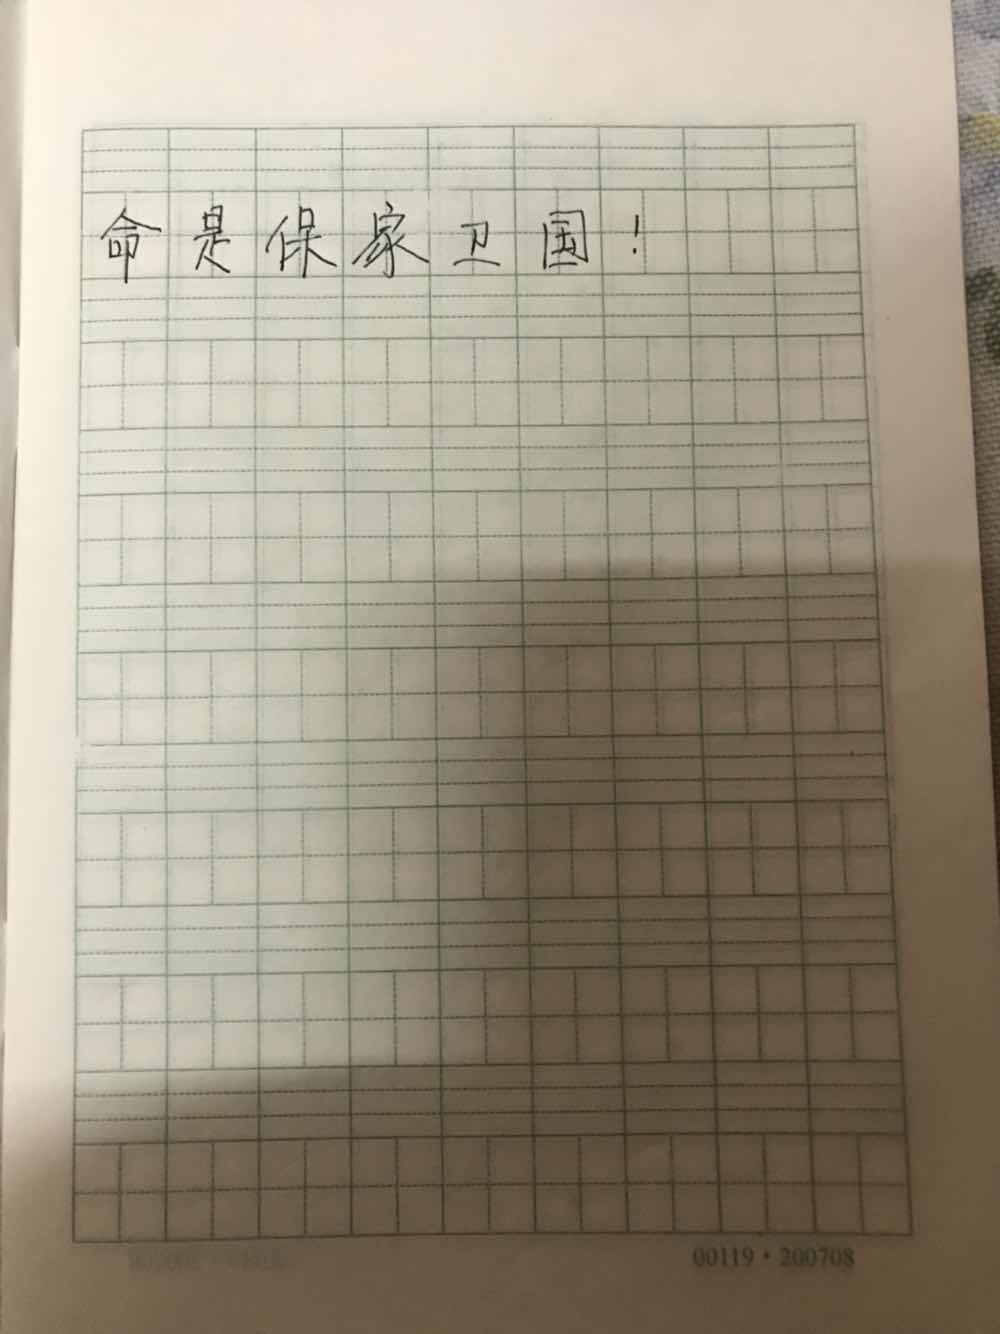 命是保家卫国！
00119·200708